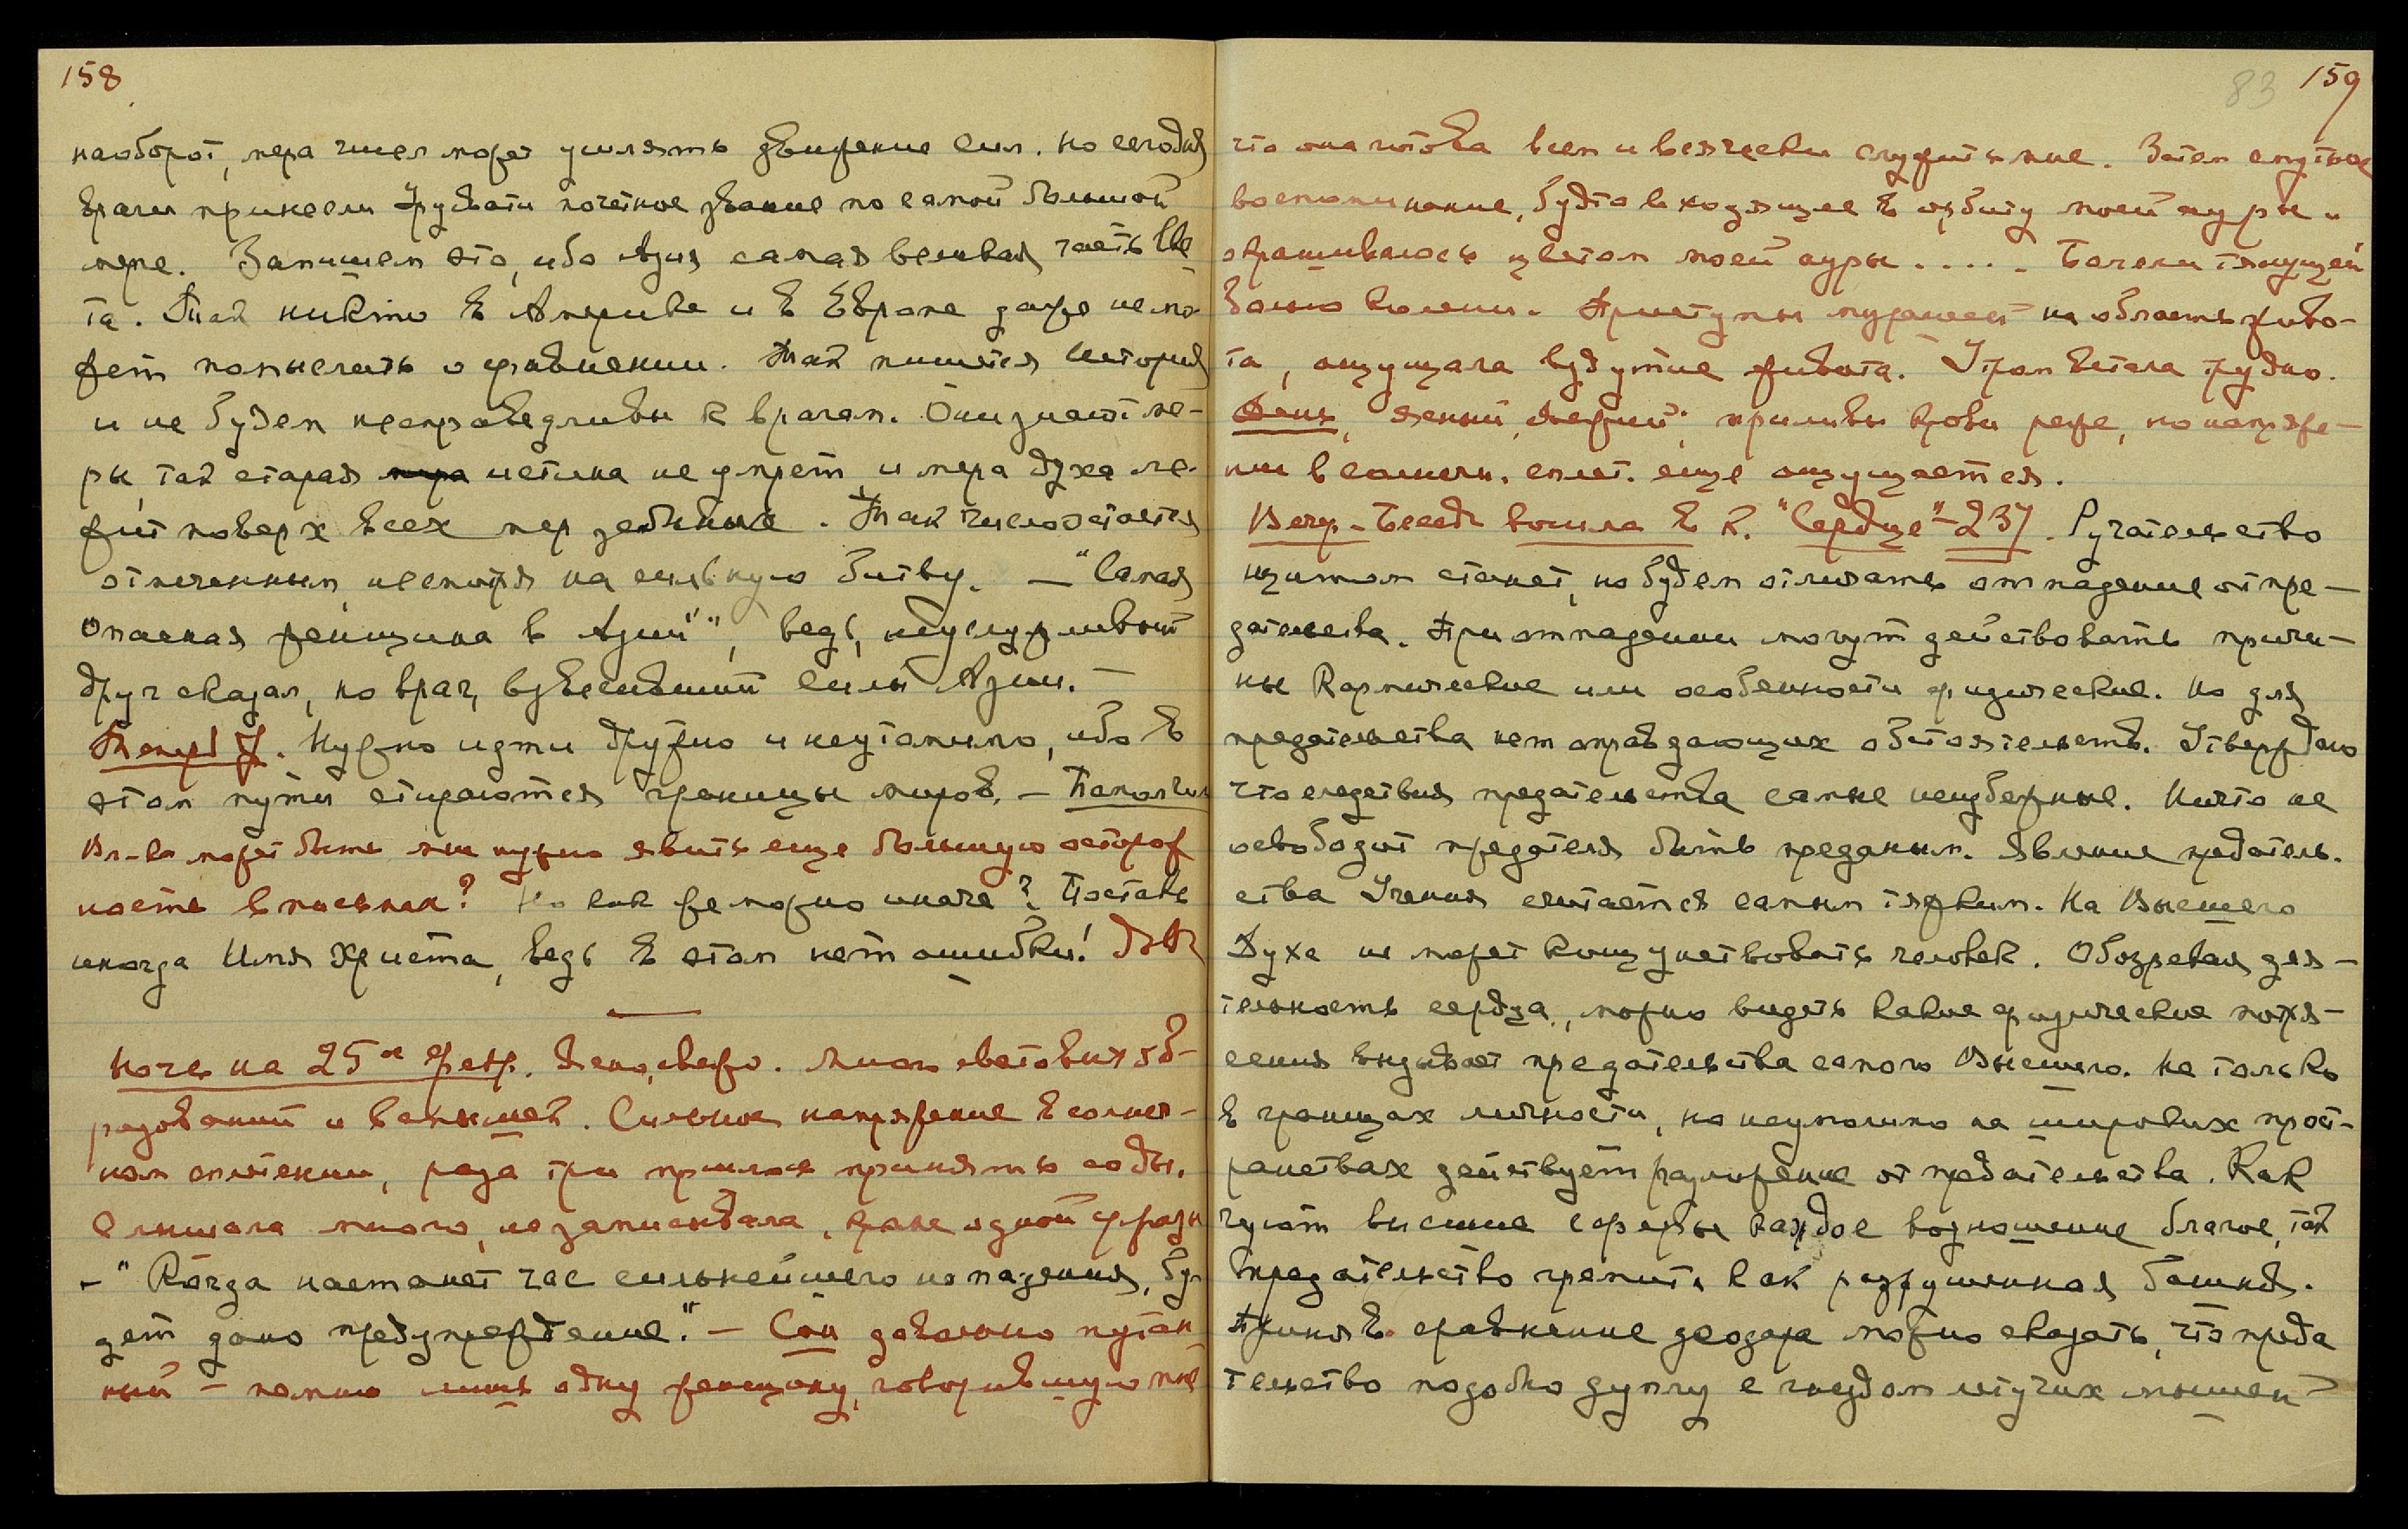 158
наоборот, мера чисел может усилять движение сил. Но сегодня
враги принесли Урувати почетное звание по самой большой
мере. Запишем это, ибо Азия самая великая часть Све-
та. Так никто в Америке и в Европе даже не мо-
жет помыслить о сравнении. Так пишется История
и не будем несправедливы к врагам. Они знают ме-
ры, так старая истина не умрет, и мера духа ле-
жит поверх всех мер
отмеченным, несмотря на сильную битву. — "Самая
опасная женщина в Азии", ведь, неуслужливый
друг сказал, но враг, взвесивший силы Азии. —
Теперь У. Нужно идти дружно и неутомимо, ибо в
этом пути стираются границы миров. —
Вл-ка может быть мне нужно явить еще большую осторож
ность в письмах? Но как же можно иначе? Поставь
иногда Имя Христа, ведь в этом нет ошибки!
Ночь на 25ое Февр. Ясно, свежо. Много световых об-
разований и вспышек. Сильное напряжение в солнеч-
ном сплетении, раза три пришлось принять соды.
Слышала много, не записывала, кроме одной фразы
– "Когда настанет час сильнейшего нападения, бу-
дет дано предупреждение." – Сон довольно путан
ный – помню лишь одну женщину, говорившую мне
83 159
что она готова всем и всячески служить мне. Затем смутное
воспоминание, будто входящее в орбиту моей ауры и
окрашивалось цветом моей ауры . . . . .
болью колени. Приступы мурашек на область живо-
та, ощущала вздутие живота. Утром встала трудно.
День, ясный, свежий; приливы крови реже, но напряже-
ние в солнечн. сплет. еще ощущается.
Веч. – Беседа вошла в к. "Сердце" – 237. Ручательство
щитом станет, но будем отличать отпадение от пре-
дательства. При отпадении могут действовать причи-
ны кармические или особенности физические. Но для
предательства нет оправдающих обстоятельств. Утверждаю
что следствия предательства самые неизбежные. Ничто не
освободит предателя быть преданным. Явление предатель-
ства Учения считается самым тяжким. На Высшего
Духа не может кощунствовать человек. Обозревая дея-
тельность сердца, можно видеть какие физические потря-
сения вызывает предательства самого Высшего. Не только
в границах личности, но неумолимо на широких прост-
ранствах действует разлижение от предательства. Как
чуют высшие сферы каждое возношение благое, так
и предательство гремит как разрушенная башня.
Приняв сравнение деодара можно сказать, что преда
тельство подобно дуплу с гнездом летучих мышей